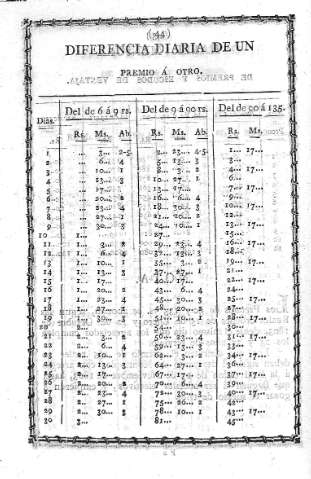 (44)
DIFERENCIA DIARIA DE UN
PREMIO Á OTRO.
Dias. Del de 6 á 9 rs. Del de 9 á 90 rs. Del de 90 á 135.
Rs. Ms. Ab. Rs. Ms. Ab. Rs. Ms.
1 ... 3... 2-5. 2... 23... 4-5. 1... 17...
2 ... 6... 4 5... 13... 3 3...
3 ... 10... 1 8... 3... 2 4... 17...
4 ... 13... 3 10... 27... 1 6...
5 ... 17... 13... 17... 7... 17...
6 ... 20... 2 16... 6... 4 9...
7 ... 23... 4 18... 30... 3 10... 17...
8 ... 27... 1 21... 20... 2 12...
9 ... 30... 3 24... 10... 1 13... 17...
10 1... 27... 15...
11 1... 3... 2 29... 23... 4 16... 17...
12 1... 6... 4 32... 13... 3 18...
13 1... 10... 1 35... 3... 2 19... 17...
14 1... 13... 3 37... 27... 1 21...
15 1... 17... 40... 17... 22... 17...
16 1... 20... 2 43... 6... 4 24...
17 1... 23... 4 45... 30... 3 25... 17...
18 1... 27... 1 48... 20... 2 27...
19 1... 30... 3 51... 10... 1 28... 17...
20 2... 54... 30...
21 2... 3... 2 56... 23... 4 31... 17...
22 2... 6... 4 59... 13... 3 33...
23 2... 10... 1 62... 3... 2 34... 17...
24 2... 13... 3 64... 27... 1 36...
25 2... 17... 67... 17... 37... 17...
26 2... 20... 2 70... 6... 4 39...
27 2... 23... 4 72... 30... 3 40... 17...
28 2... 27... 1 75... 20... 2 42...
29 2... 30... 3 78... 10... 1 43... 17...
30 3... 81... 45...